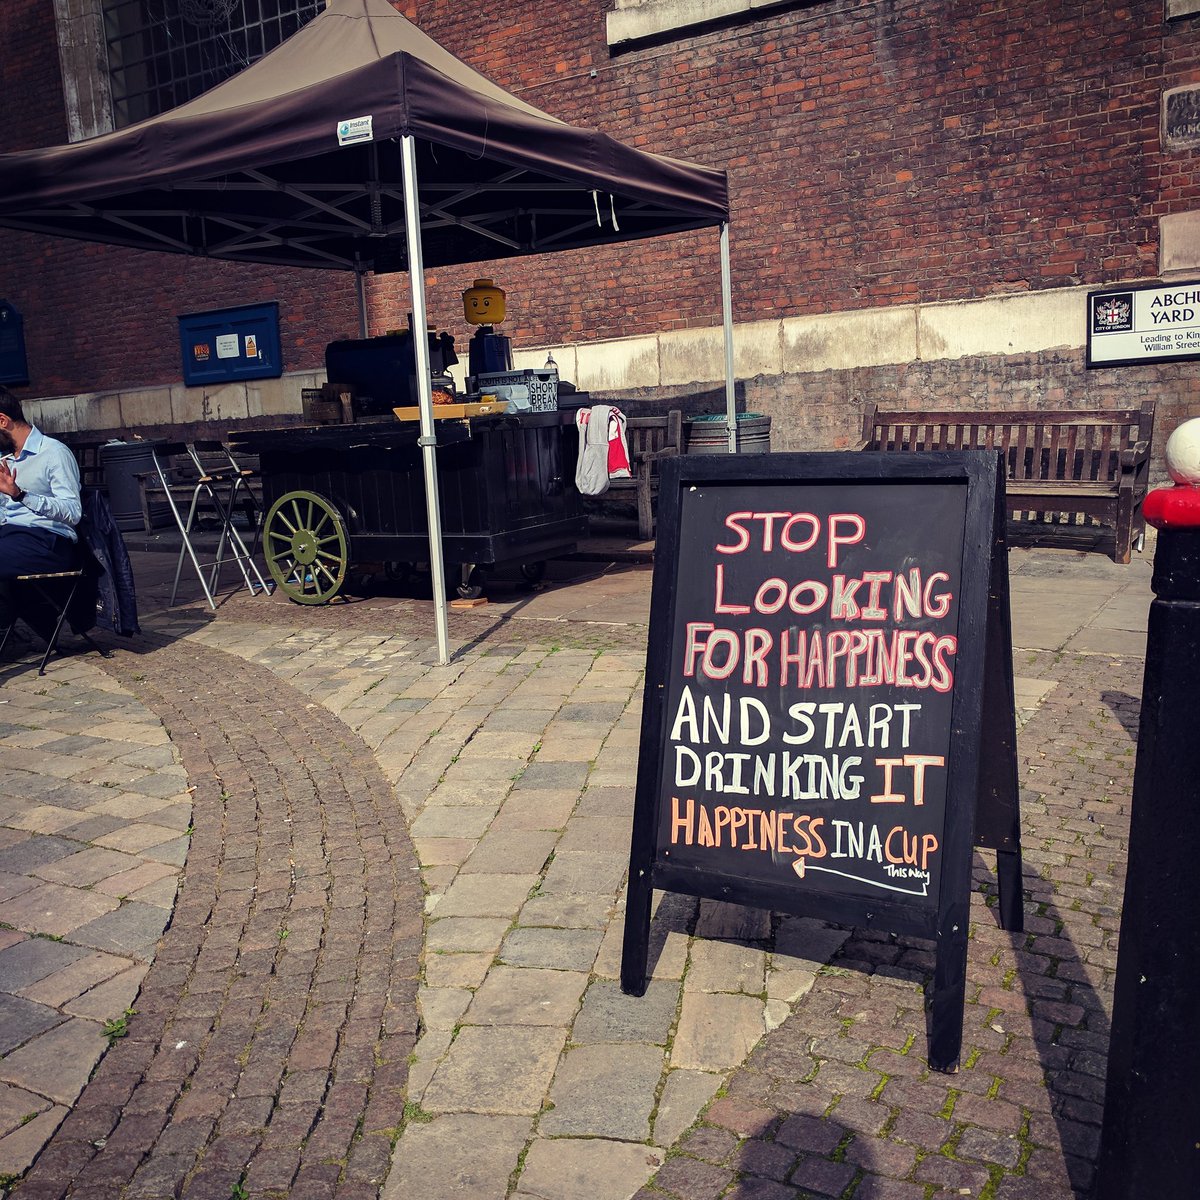 Instant
ABCHU
YARD
CITY OF LONDON
Leading to Kin
William Street
SHORT
BREAK
THE RULES
STOP
LOOKING
FOR HAPPINESS
AND START
DRINKING IT
HAPPINESS IN A CUP
This Way